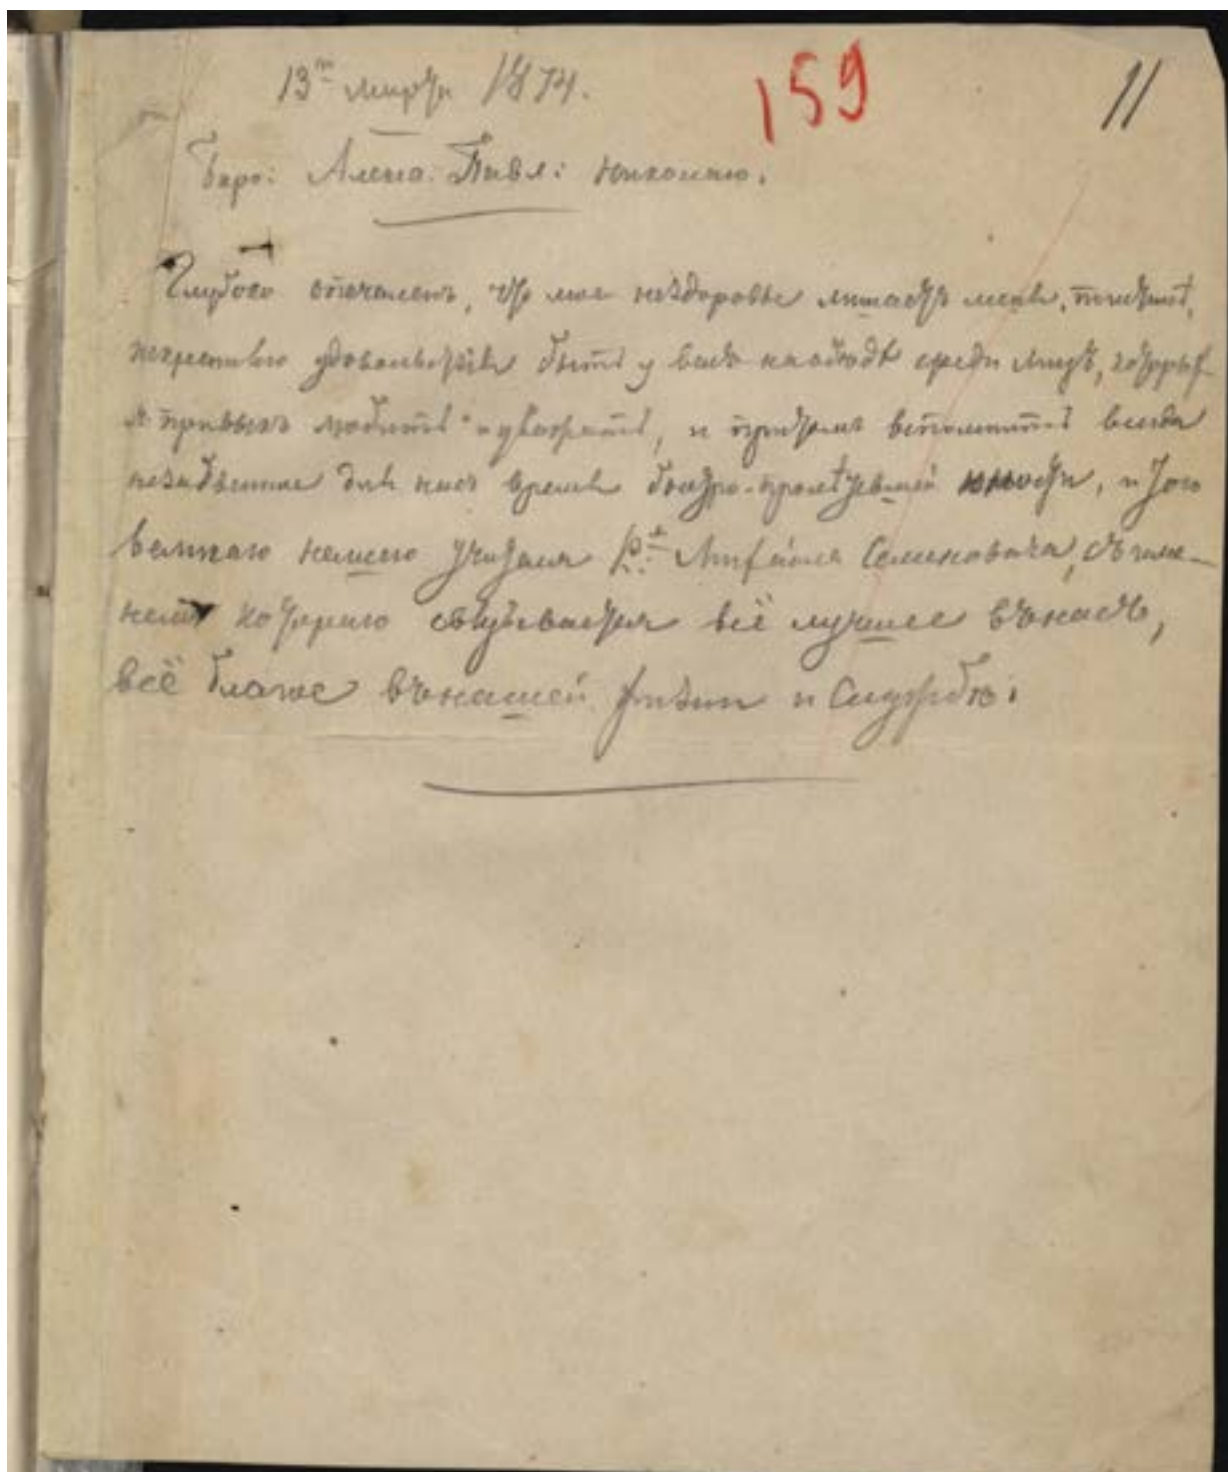 13го марта 1874.
159
11
Баро: Алекс. Павл: Николаю.
Глубоко опечаленъ, что мое нездоровье лишаетъ меня,
искренняго удовольствія быть у васъ на обѣдѣ среди лицъ, которыхъ
я привыкъ любить и уважать, и притомъ вспомнить всегда
незабвенное для насъ время быстро-пролѣтѣвшей юности, и того
великаго нашего учителя Семеновича, съ име-
немъ котораго связывается всё лучшее въ насъ,
всё благое въ нашей жизни и службѣ: